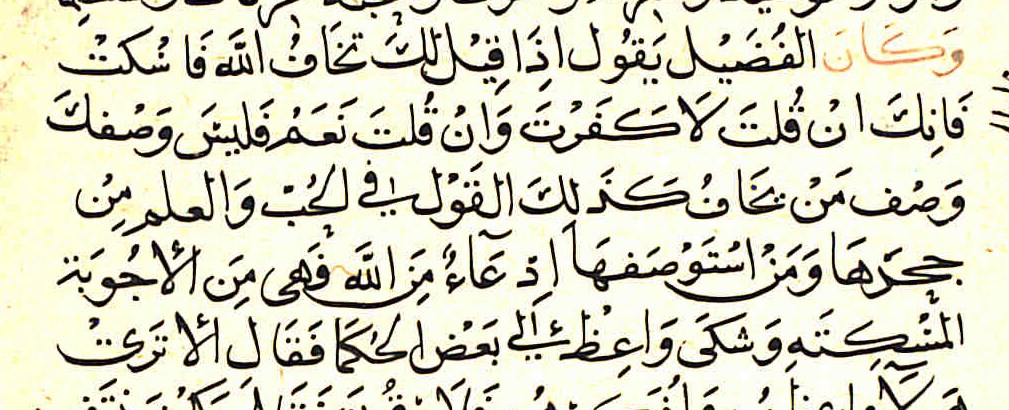 وَكَانَ الفُضَيْل يَقُول اِذَا قِيْلَ لَكَ تَخَافُ اللَّهَ فَاسْكتْ
فَاِنكَ انْ قُلتَ لَا كَفَرْتَ وَانْ قُلتَ نَعَمْ فَليسَ وَصْفكَ
وَصْف مَنْ يخَافُ كَذَلِكَ القَوْل في الحُبّ وَالعلم مِن
جحدَهَا وَمَنْ اسْتَوْصَفهَا ادّعَاءٌ مِنَ اللَّهِ فَهى مِنَ الأجْوبَة
المسْكتَه وَشكَى وَاعِظ إلى بَعْض الحُكمَا فَقَالَ ألا تَرَىْ